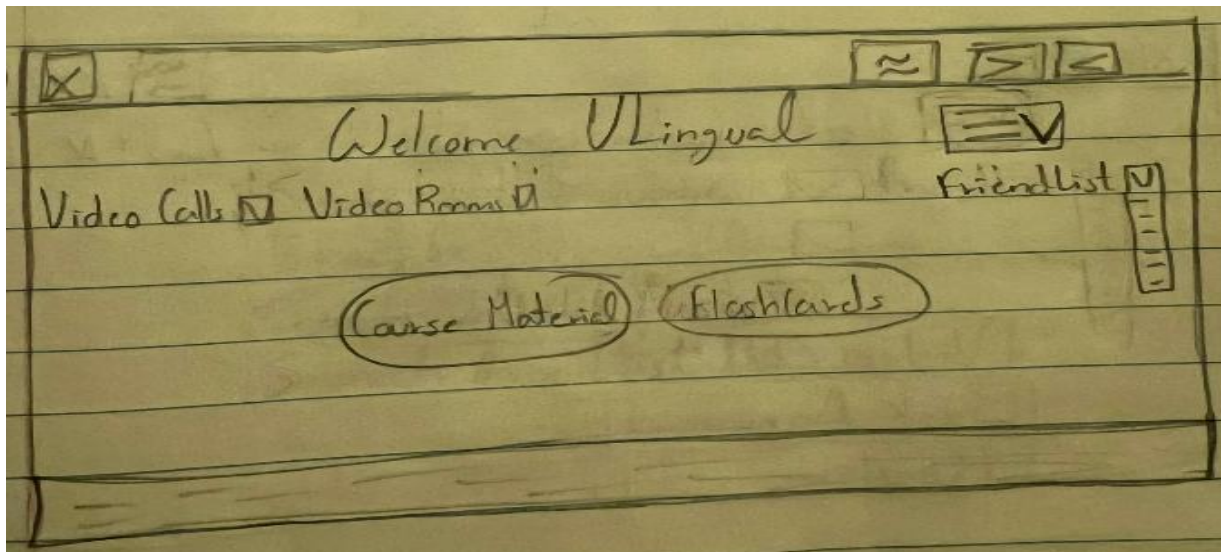 Welcome VLingual
Video Calls Video Rooms FriendList
Course Material Flashcards